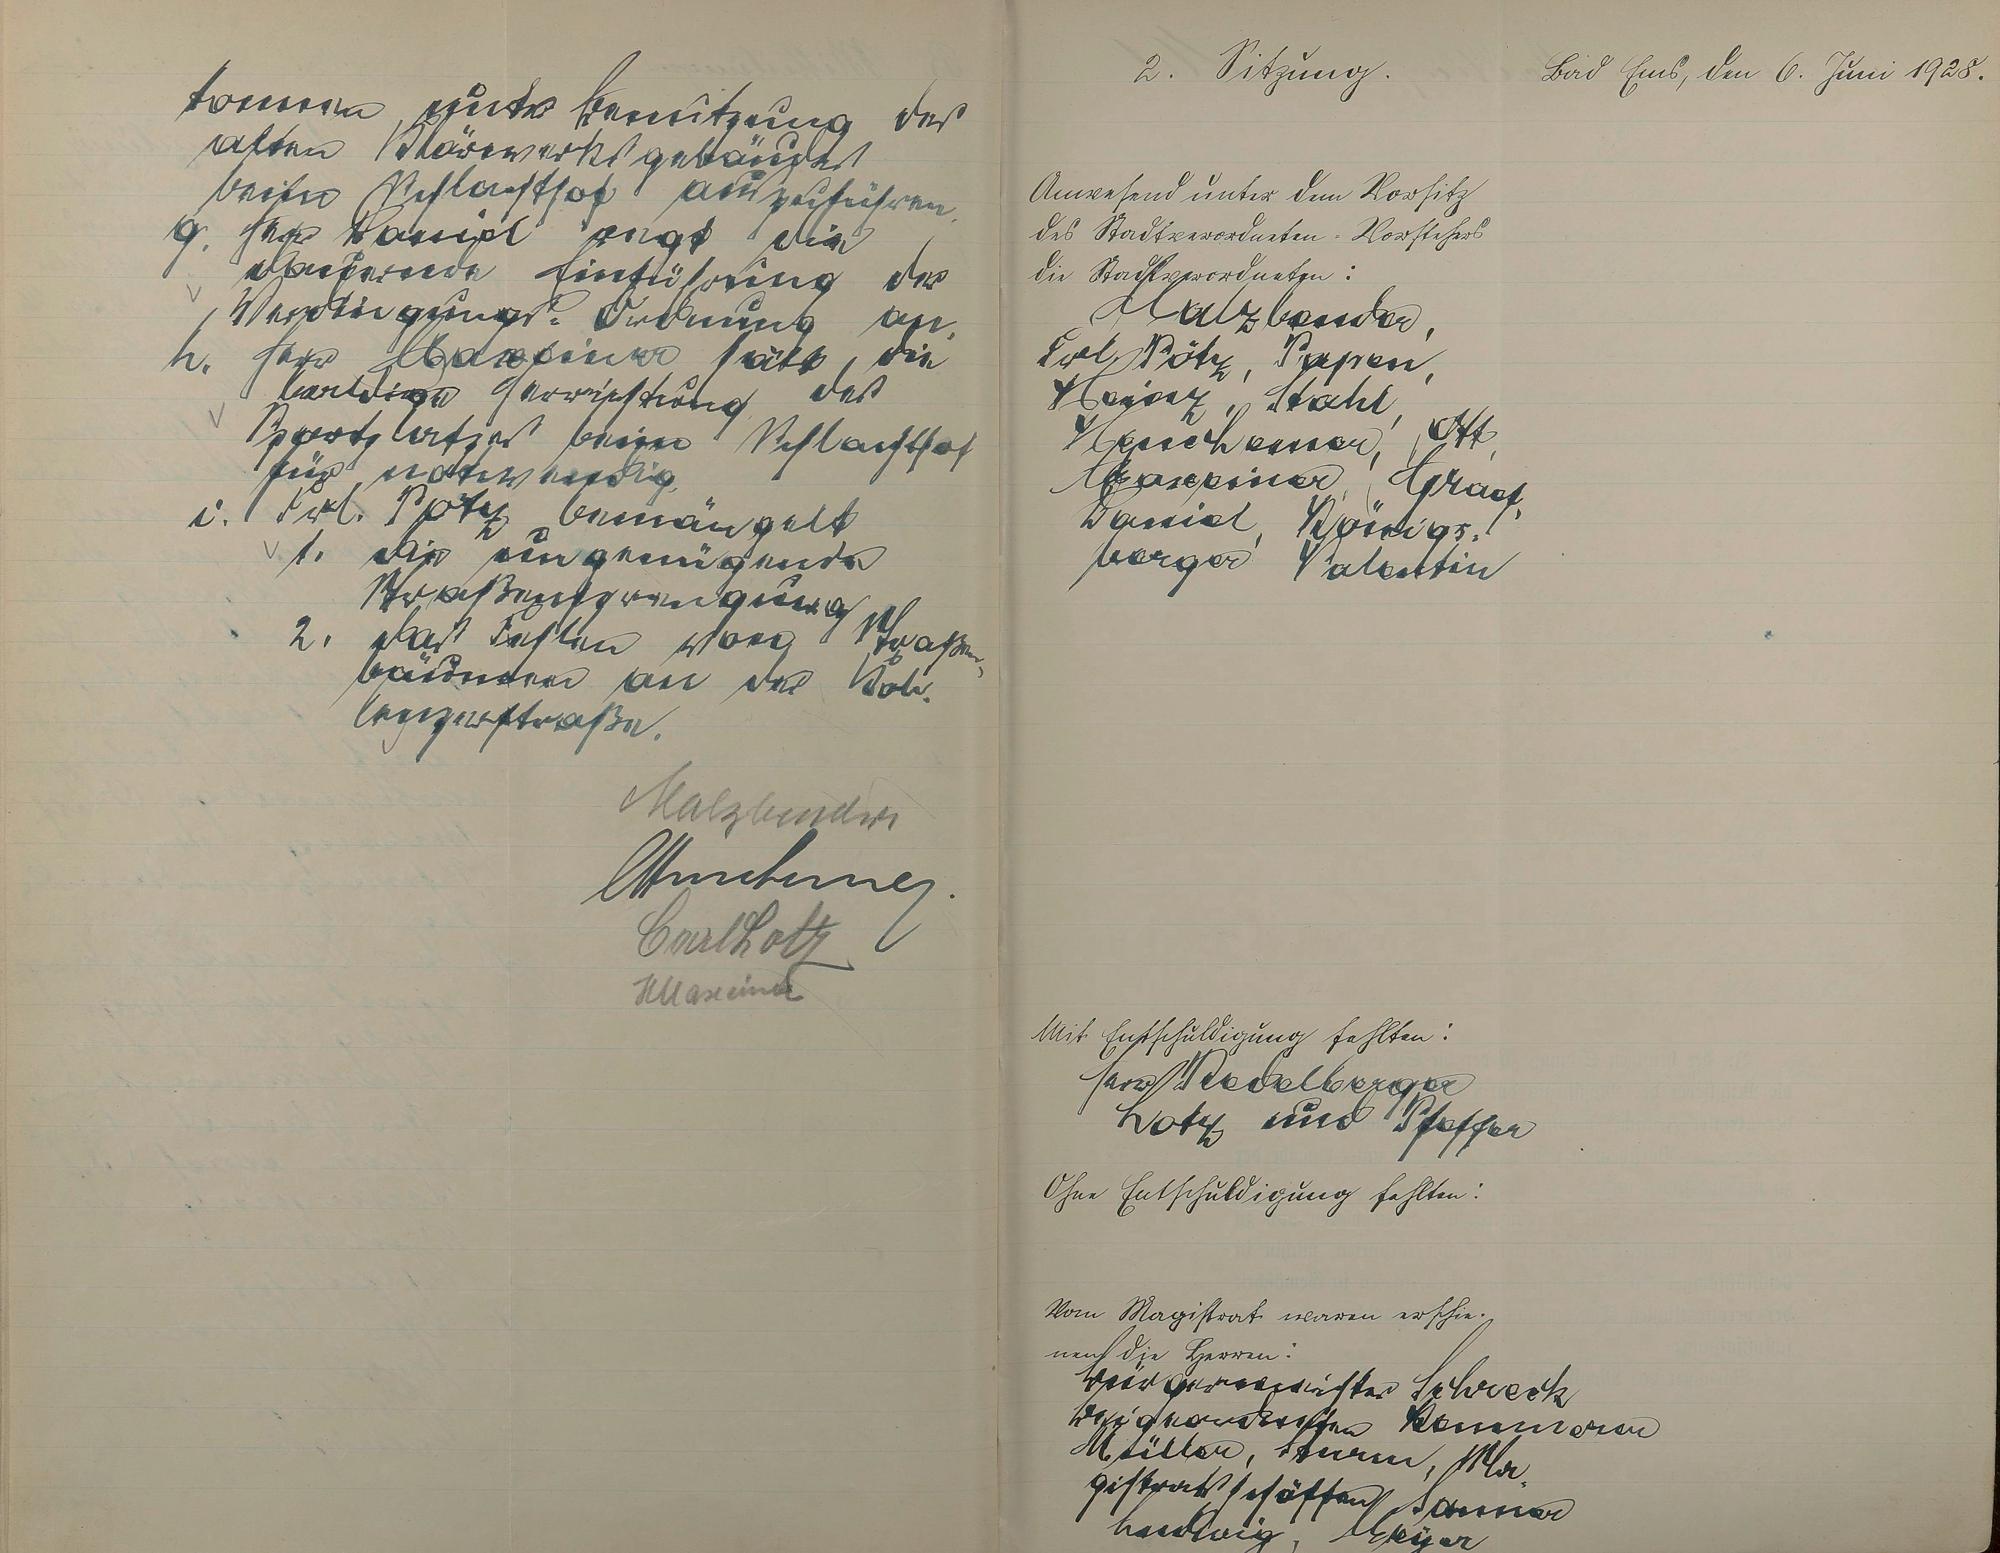 tonnen unter Benutzung des
alten Klärwerksgebäudes
beim Schlachthof auszuführen.
g. Herr Daniel regt die
dauernde Einführung der
Verdingungs-Ordnung an.
h. Herr Maxeiner hält die
baldige Herrichtung des
Sportplatzes beim Schlachthof
für notwendig.
i. Frl. Pötz bemängelt
1. die ungenügende
Straßensprengung
2. das Fehlen von Straßen-
bäumen an der Kob-
lenzerstraße.
Malzbender
Carl Lotz
Maxeiner
2. Sitzung. Bad Ems, den 6. Juni 1928.
Anwesend unter dem Vorsitz
des Stadtverordneten-Vorstehers
die Stadtverordneten:
Malzbender,
Frl. Pötz, Papen,
Heinz, Stahl,
Ott,
Maxeiner, Graef,
Daniel, Königs-
berger, Valentin
Mit Entschuldigung fehlten:
Herr Nedelberger
Lotz und Pfeffer
Ohne Entschuldigung fehlten:
Vom Magistrat waren erschie-
nen die Herren:
Bürgermeister Schreck
Beigeordneten
Müller, Sturm, Ma-
gistratsschöffen Sauer
Ludwig, Meyer